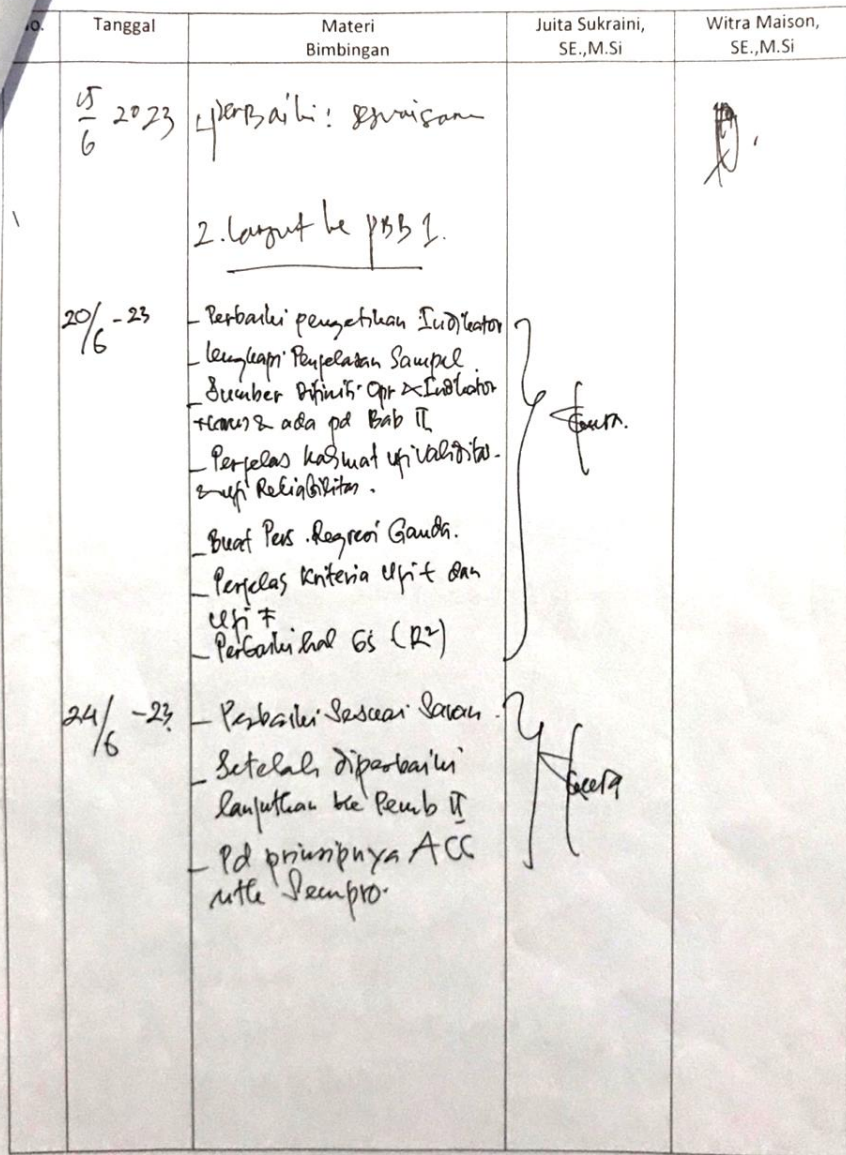 o.
Tanggal
Materi
Bimbingan
Juita Sukraini,
SE.,M.Si
Witra Maison,
SE.,M.Si
15/6 2023
1. perbaiki: sesuai saran
2. Lanjut ke PBB 1.
20/6 -23
- Perbaiki pengetikan Indikator
- Lengkapi Penjelasan Sampel
- Sumber Difinisi Opr & Indikator
Harus ada pd Bab II
- Perjelas kalimat uji Validitas
& uji Reliabilitas.
- Buat Pers. Regresi Ganda.
- Perjelas Kriteria Uji t dan
Uji F
- Perbaiki hal 65 (R²)
24/6 -23
- Perbaiki Sesuai Saran.
- Setelah diperbaiki
lanjutkan ke Pemb II
- Pd prinsipnya ACC
utk Sempro.